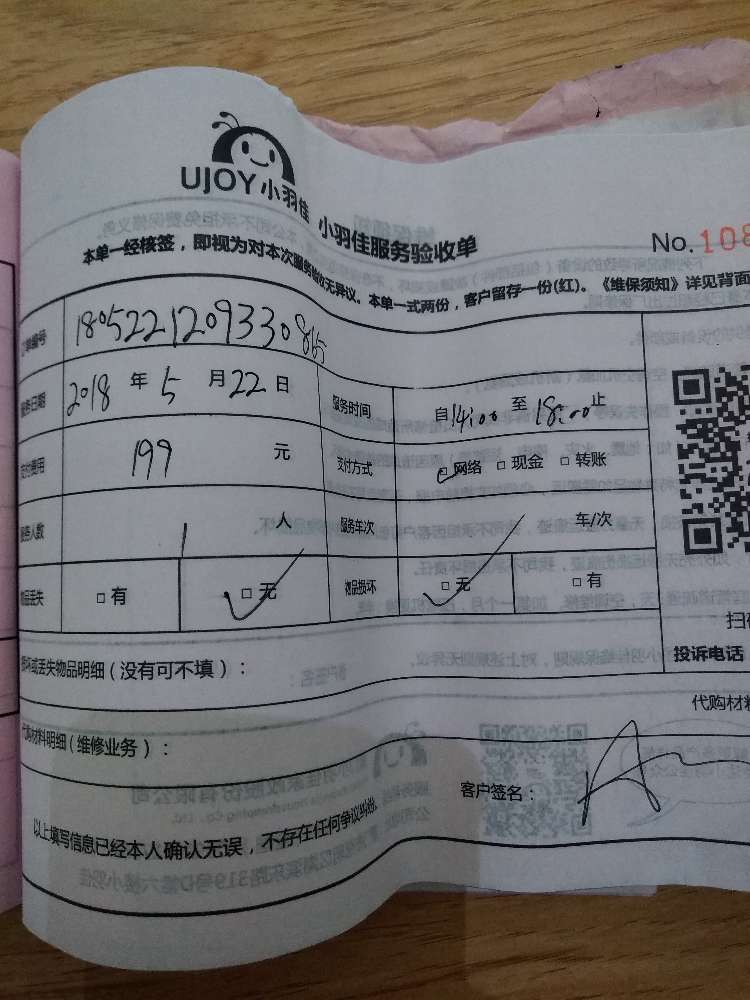 UJOY小羽佳
小羽佳服务验收单
No.108
本单一经核签，即视为对本次服务验收无异议。本单一式两份，客户留存一份(红)。《维保须知》详见背面
订单编号 180522120933086
服务日期 2018 年 5 月 22 日 服务时间 自 14:00 至 18:00 止
支付费用 199 元 支付方式 □网络 □现金 □转账
服务人数 1 人 服务车次 车/次
物品丢失 □有 □无 物品损坏 □无 □有
扫
投诉电话
损坏或丢失物品明细（没有可不填）：
代购材料
代购材料明细（维修业务）：
客户签名：
以上填写信息已经本人确认无误，不存在任何争议纠纷。